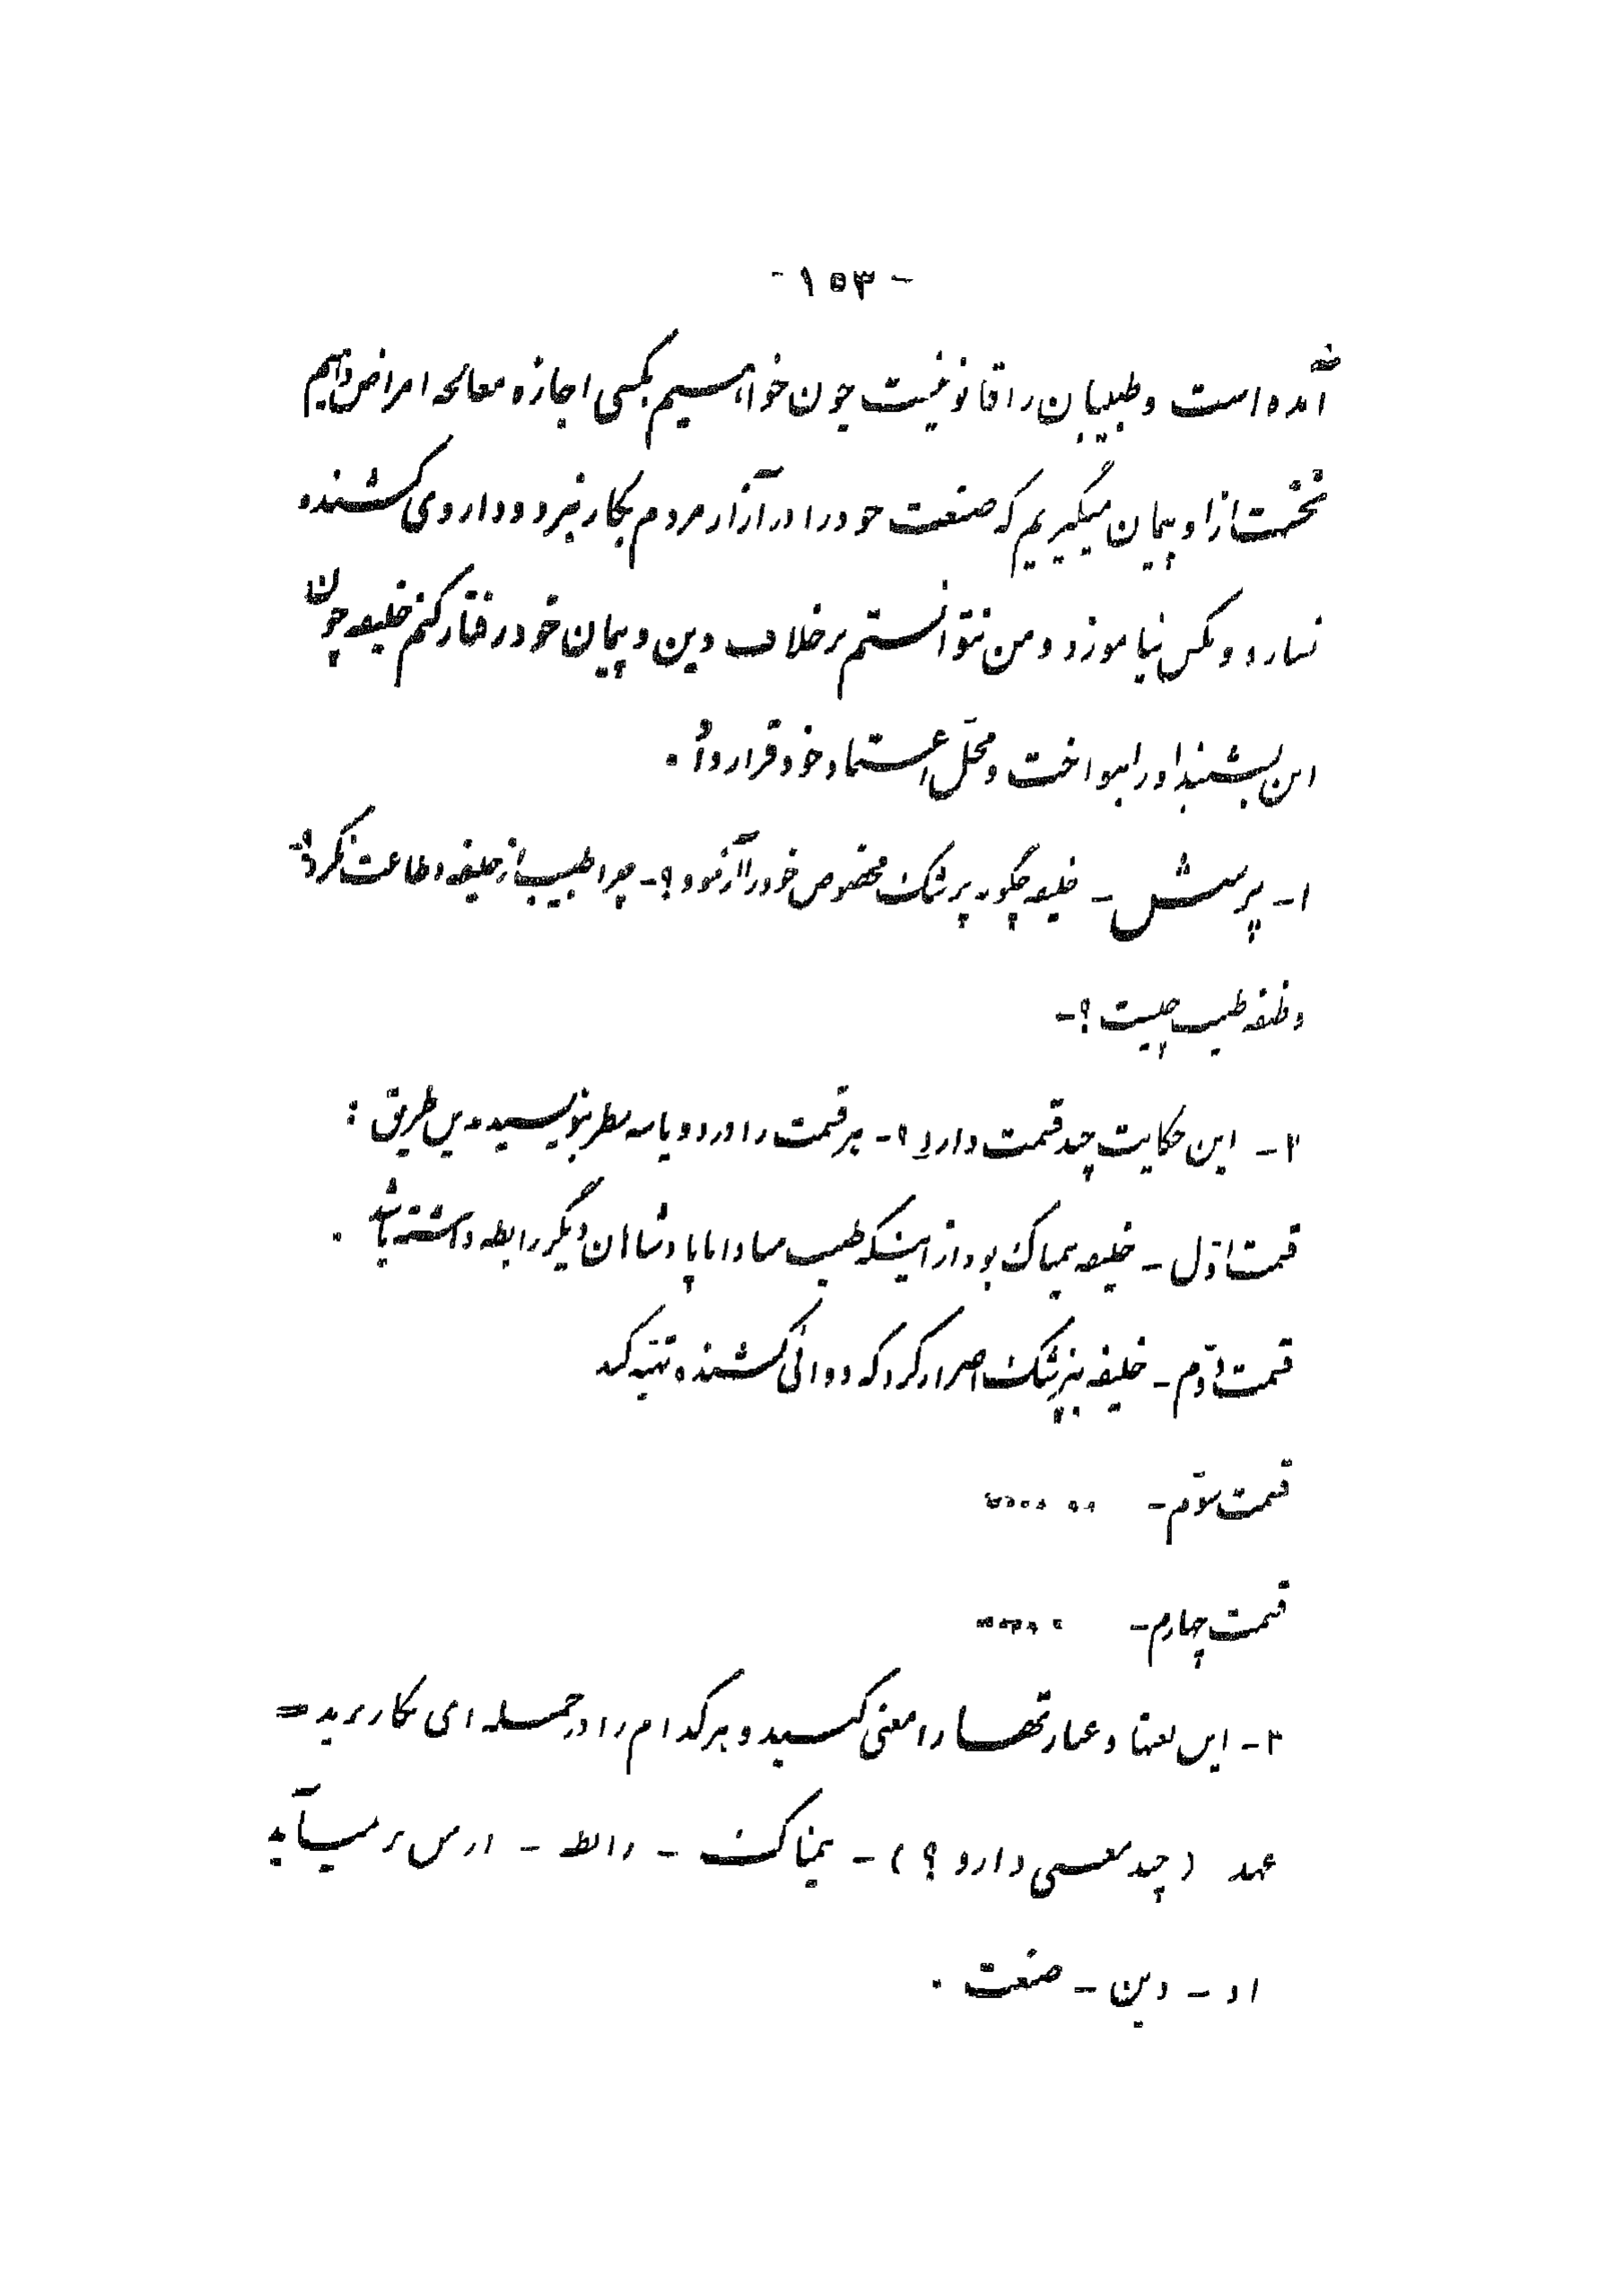 - ۱۵۳ -
آمده است و طبیبان را قانونیست چون خواستیم بکسی اجازه معالجه امراض دهیم
نخست از او پیمان میگیریم که صنعت خود را در آزار مردم بکار نبرد و داروی کشنده
نسازد و بکس نیاموزد و من نتوانستم بر خلاف دین و پیمان خود رفتار کنم خلیفه چون
این بشنید او را بنواخت و محلّ اعتماد خود قرار داد .
۱- پرسش - خلیفه چگونه پزشک مخصوص خود را آزمود ؟- چرا طبیب از خلیفه اطاعت نکرد ؟-
وظیفه طبیب چیست ؟-
۲- این حکایت چند قسمت دارد ؟- هر قسمت را در دو یا سه سطر بنویسید بدین طریق :
قسمت اوّل - خلیفه بیمناک بود از اینکه طبیب مبادا با پادشاهان دیگر رابطه داشته باشد .
قسمت دوّم - خلیفه بپزشک اصرار کرد که دوائی کشنده تهیه کند
قسمت سوّم - ......
قسمت چهارم - ......
۳- این لغتها و عبارتها را معنی کنید و هر کدام را در جمله ای بکار برید =
عهد ( چند معنی دارد ؟ ) - بیمناک - رابطه - از من بر میآید
- دین - صنعت .